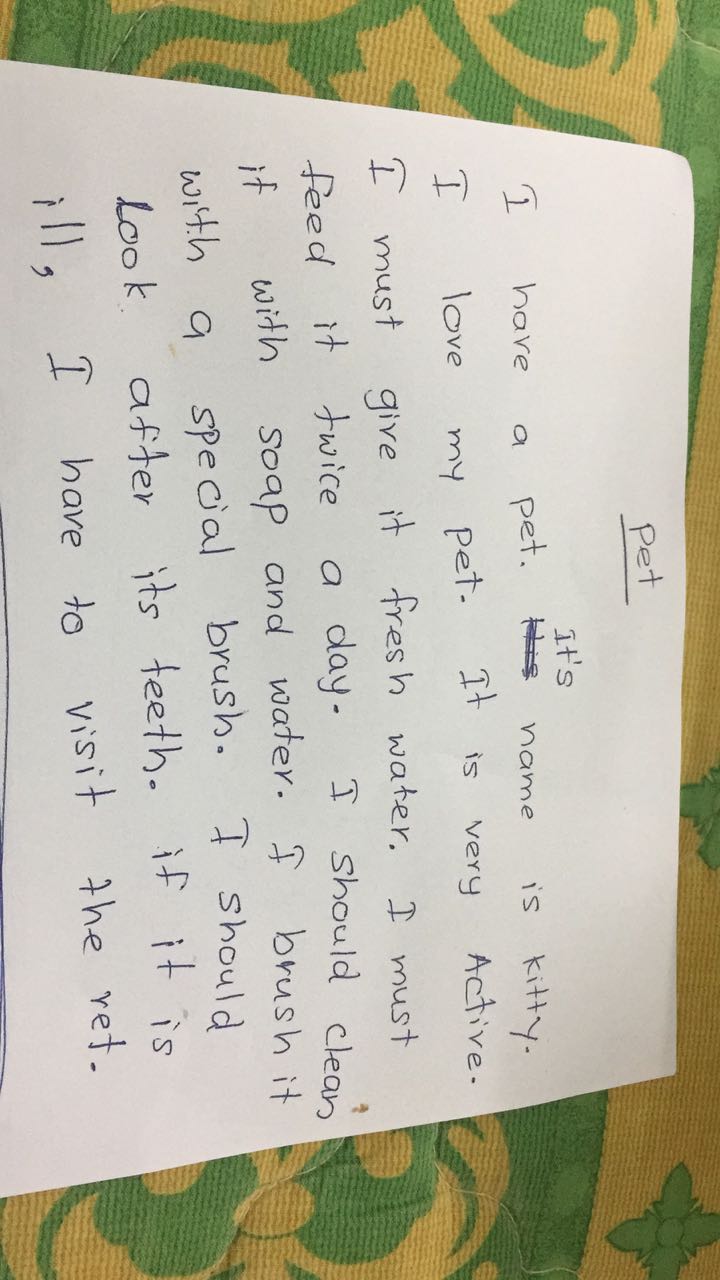 Pet
I have a pet. It's name is kitty.
I love my pet. It is very Active.
I must give it fresh water. I must
feed it twice a day. I should clean
it with soap and water. I brush it
with a special brush. I should
Look after its teeth. if it is
ill, I have to visit the vet.